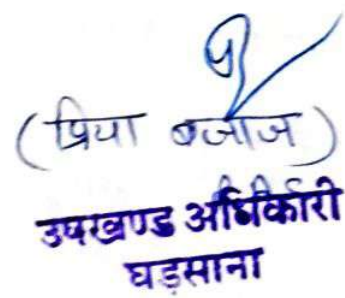 (प्रिया बजाज)
उपखण्ड अधिकारी
घड़साना